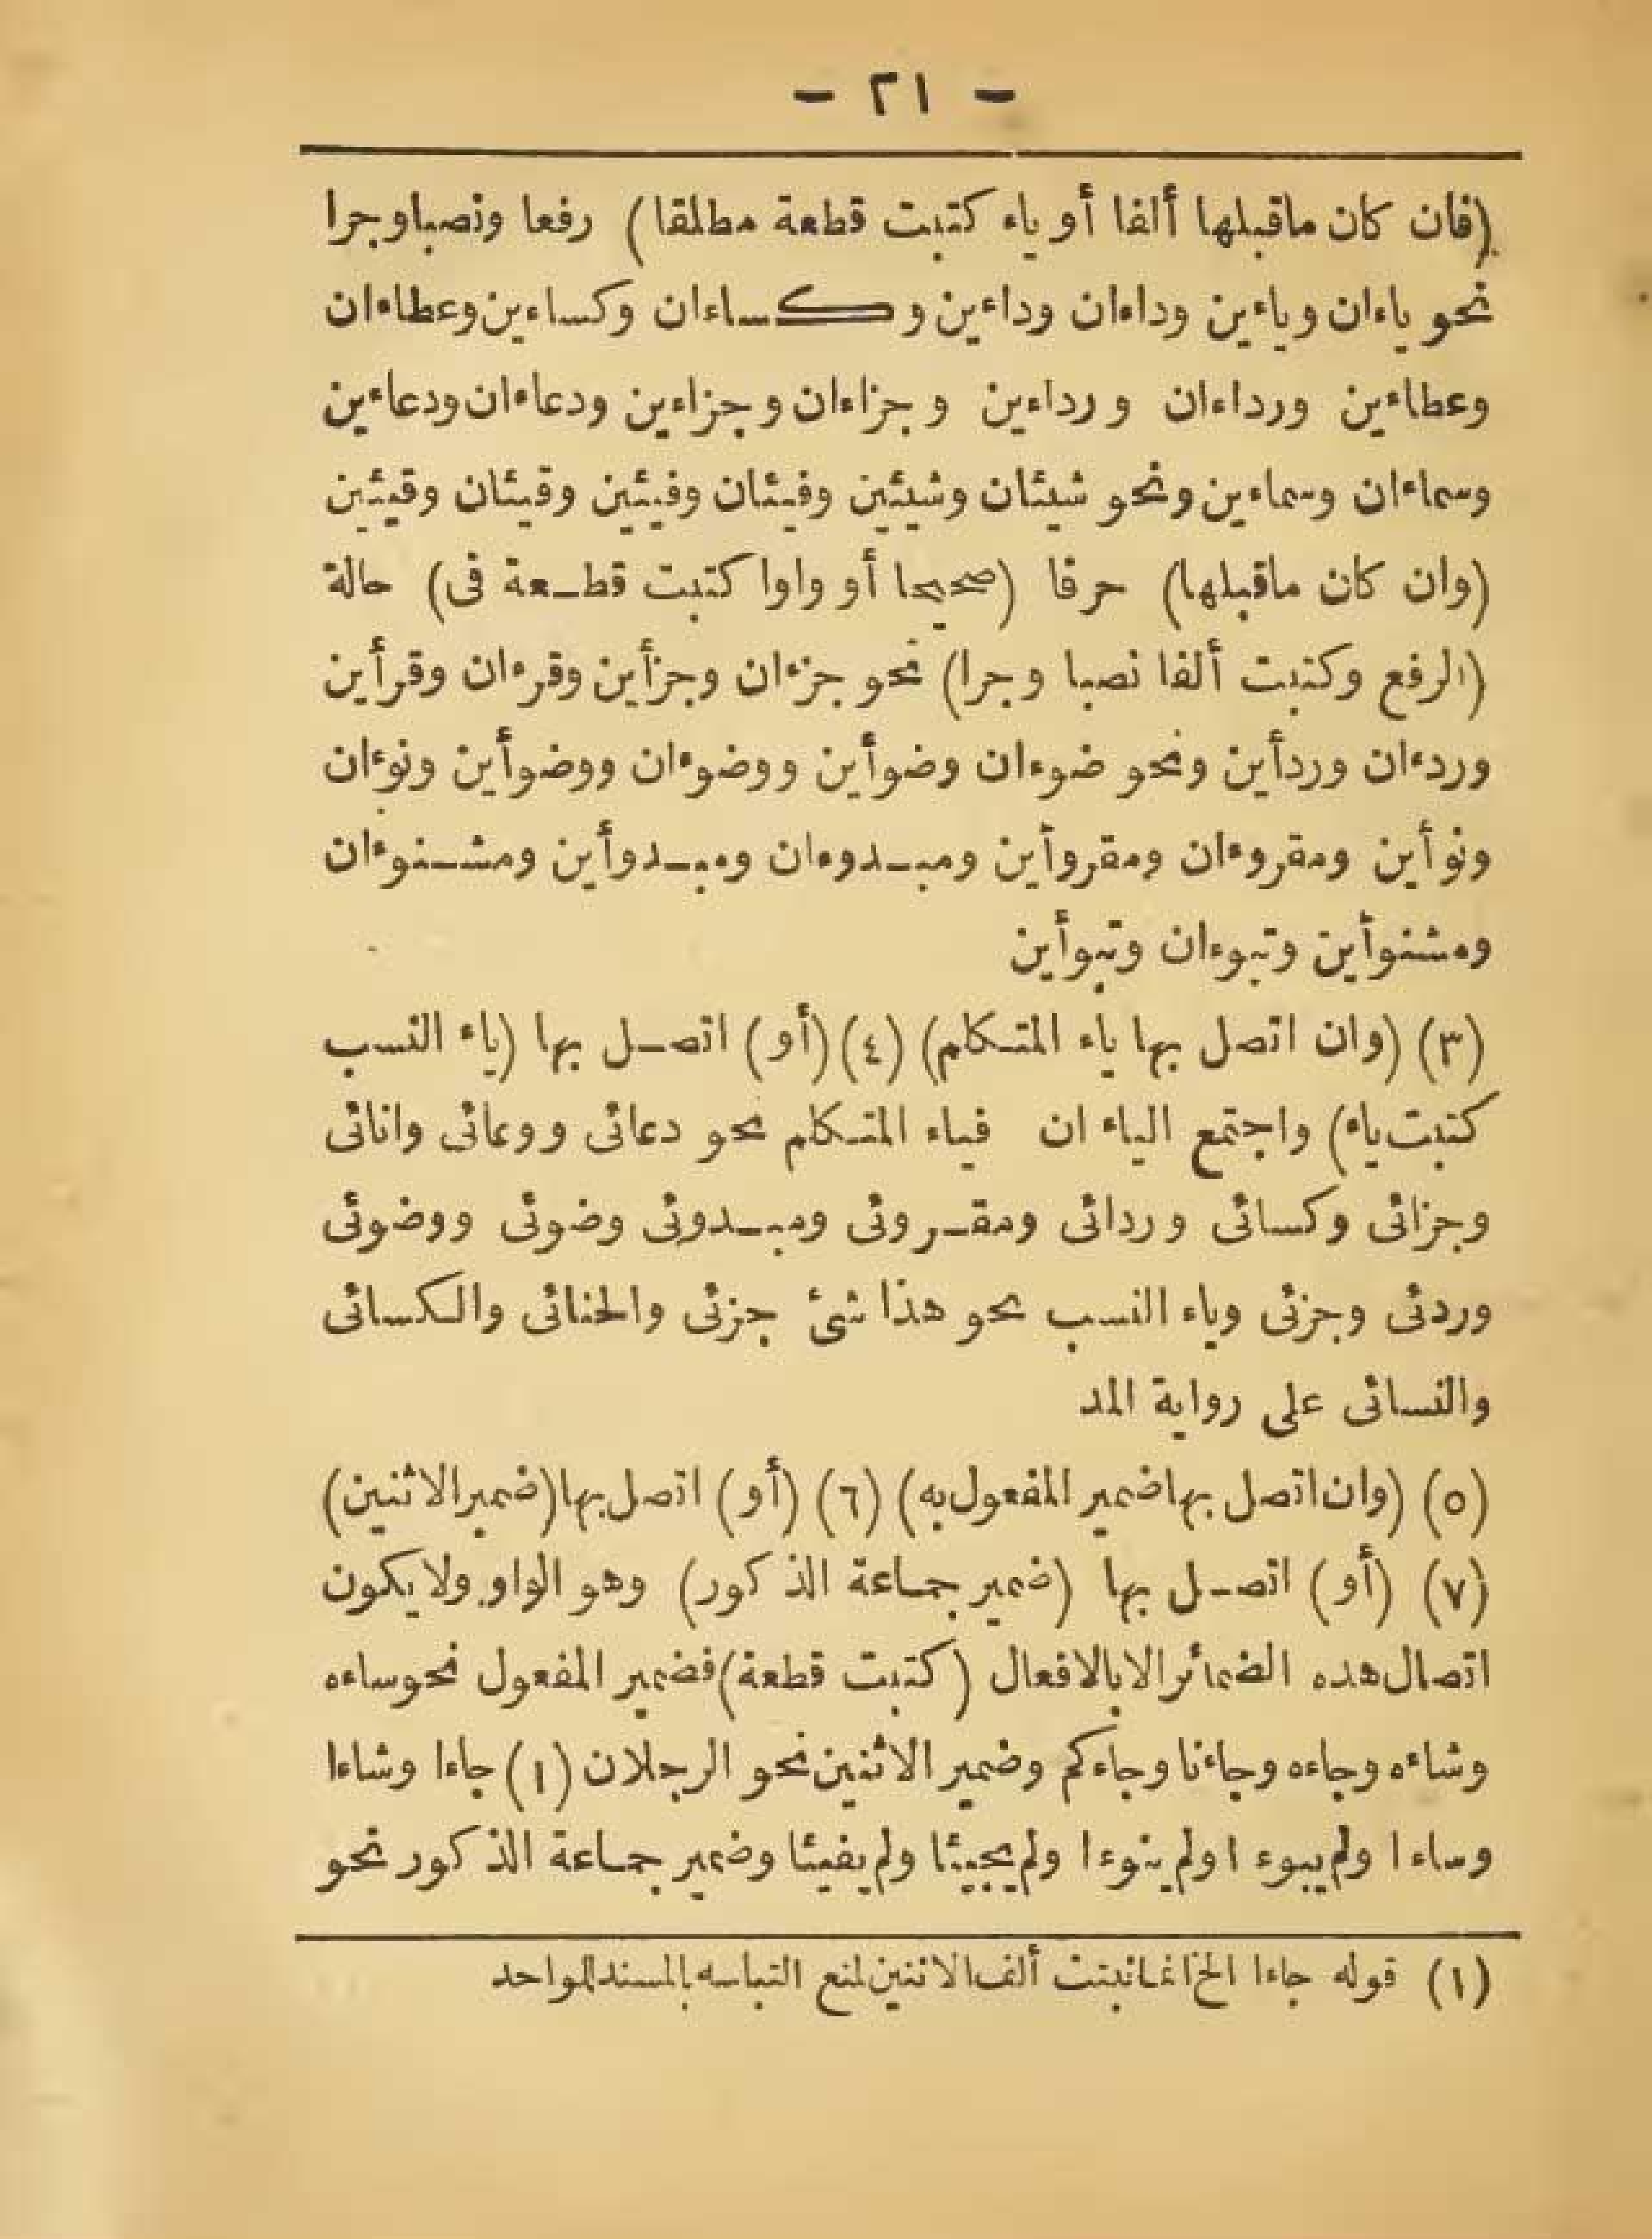 - ٢١ -
(فان كان ماقبلها ألفا أو ياء كتبت قطعة مطلقا) رفعا ونصبا وجرا
نحو ياءان وياءين وداءان وداءين وكساءان وكساءين وعطاءان
وعطاءين ورداءان ورداءين وجزاءان وجزاءين ودعاءان ودعاءين
وسماءان وسماءين ونحو شيئان وشيئين وفيئان وفيئين وقيئان وقيئين
(وان كان ماقبلها) حرفا (صحيحا أو واوا كتبت قطعة فى) حالة
(الرفع وكتبت ألفا نصبا وجرا) نحو جزءان وجزأين وقرءان وقرأين
وردءان وردأين ونحو ضوءان وضوأين ووضوءان ووضوأين ونوءان
ونوأين ومقروءان ومقروأين ومبدوءان ومبدوأين ومشنوءان
ومشنوأين وتبوءان وتبوأين
(٣) (وان اتصل بها ياء المتكلم) (٤) (أو) اتصل بها (ياء النسب
كتبت ياء) واجتمع الياء ان فياء المتكلم نحو دعائى ووعائى وانائى
وجزائى وكسائى وردائى ومقروئى ومبدوئى وضوئى ووضوئى
وردئى وجزئى وياء النسب نحو هذا شئ جزئى والحنائى والكسائى
والنسائى على رواية المد
(٥) (وان اتصل بها ضمير المفعول به) (٦) (أو) اتصل بها (ضمير الاثنين)
(٧) (أو) اتصل بها (ضمير جماعة الذكور) وهو الواو ولا يكون
اتصال هده الضمائر الا بالافعال (كتبت قطعة) فضمير المفعول نحو ساءه
وشاءه وجاءه وجاءنا وجاءكم وضمير الاثنين نحو الرجلان (١) جاءا وشاءا
وساءا ولم يبوءا ولم ينوءا ولم يجيئا ولم يفيئا وضمير جماعة الذكور نحو
(١) قوله جاءا الخ انما ثبتت ألف الاثنين لمنع التباسه بالمسند للواحد